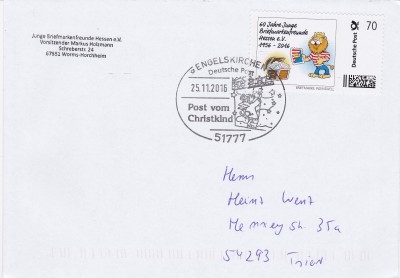 Junge Briefmarkenfreunde Hessen e.V.
Vorsitzender Markus Holzmann
Schreberstr. 24
67551 Worms-Horchheim
60 Jahre Junge
Briefmarkenfreunde
Hessen e.V.
1956 - 2016
Deutsche Post
70
ENGELSKIRCHEN
Deutsche Post
25.11.2016
Post vom
Christkind
51777
Herrn
Heinz Wenz
35a
54293 Trier